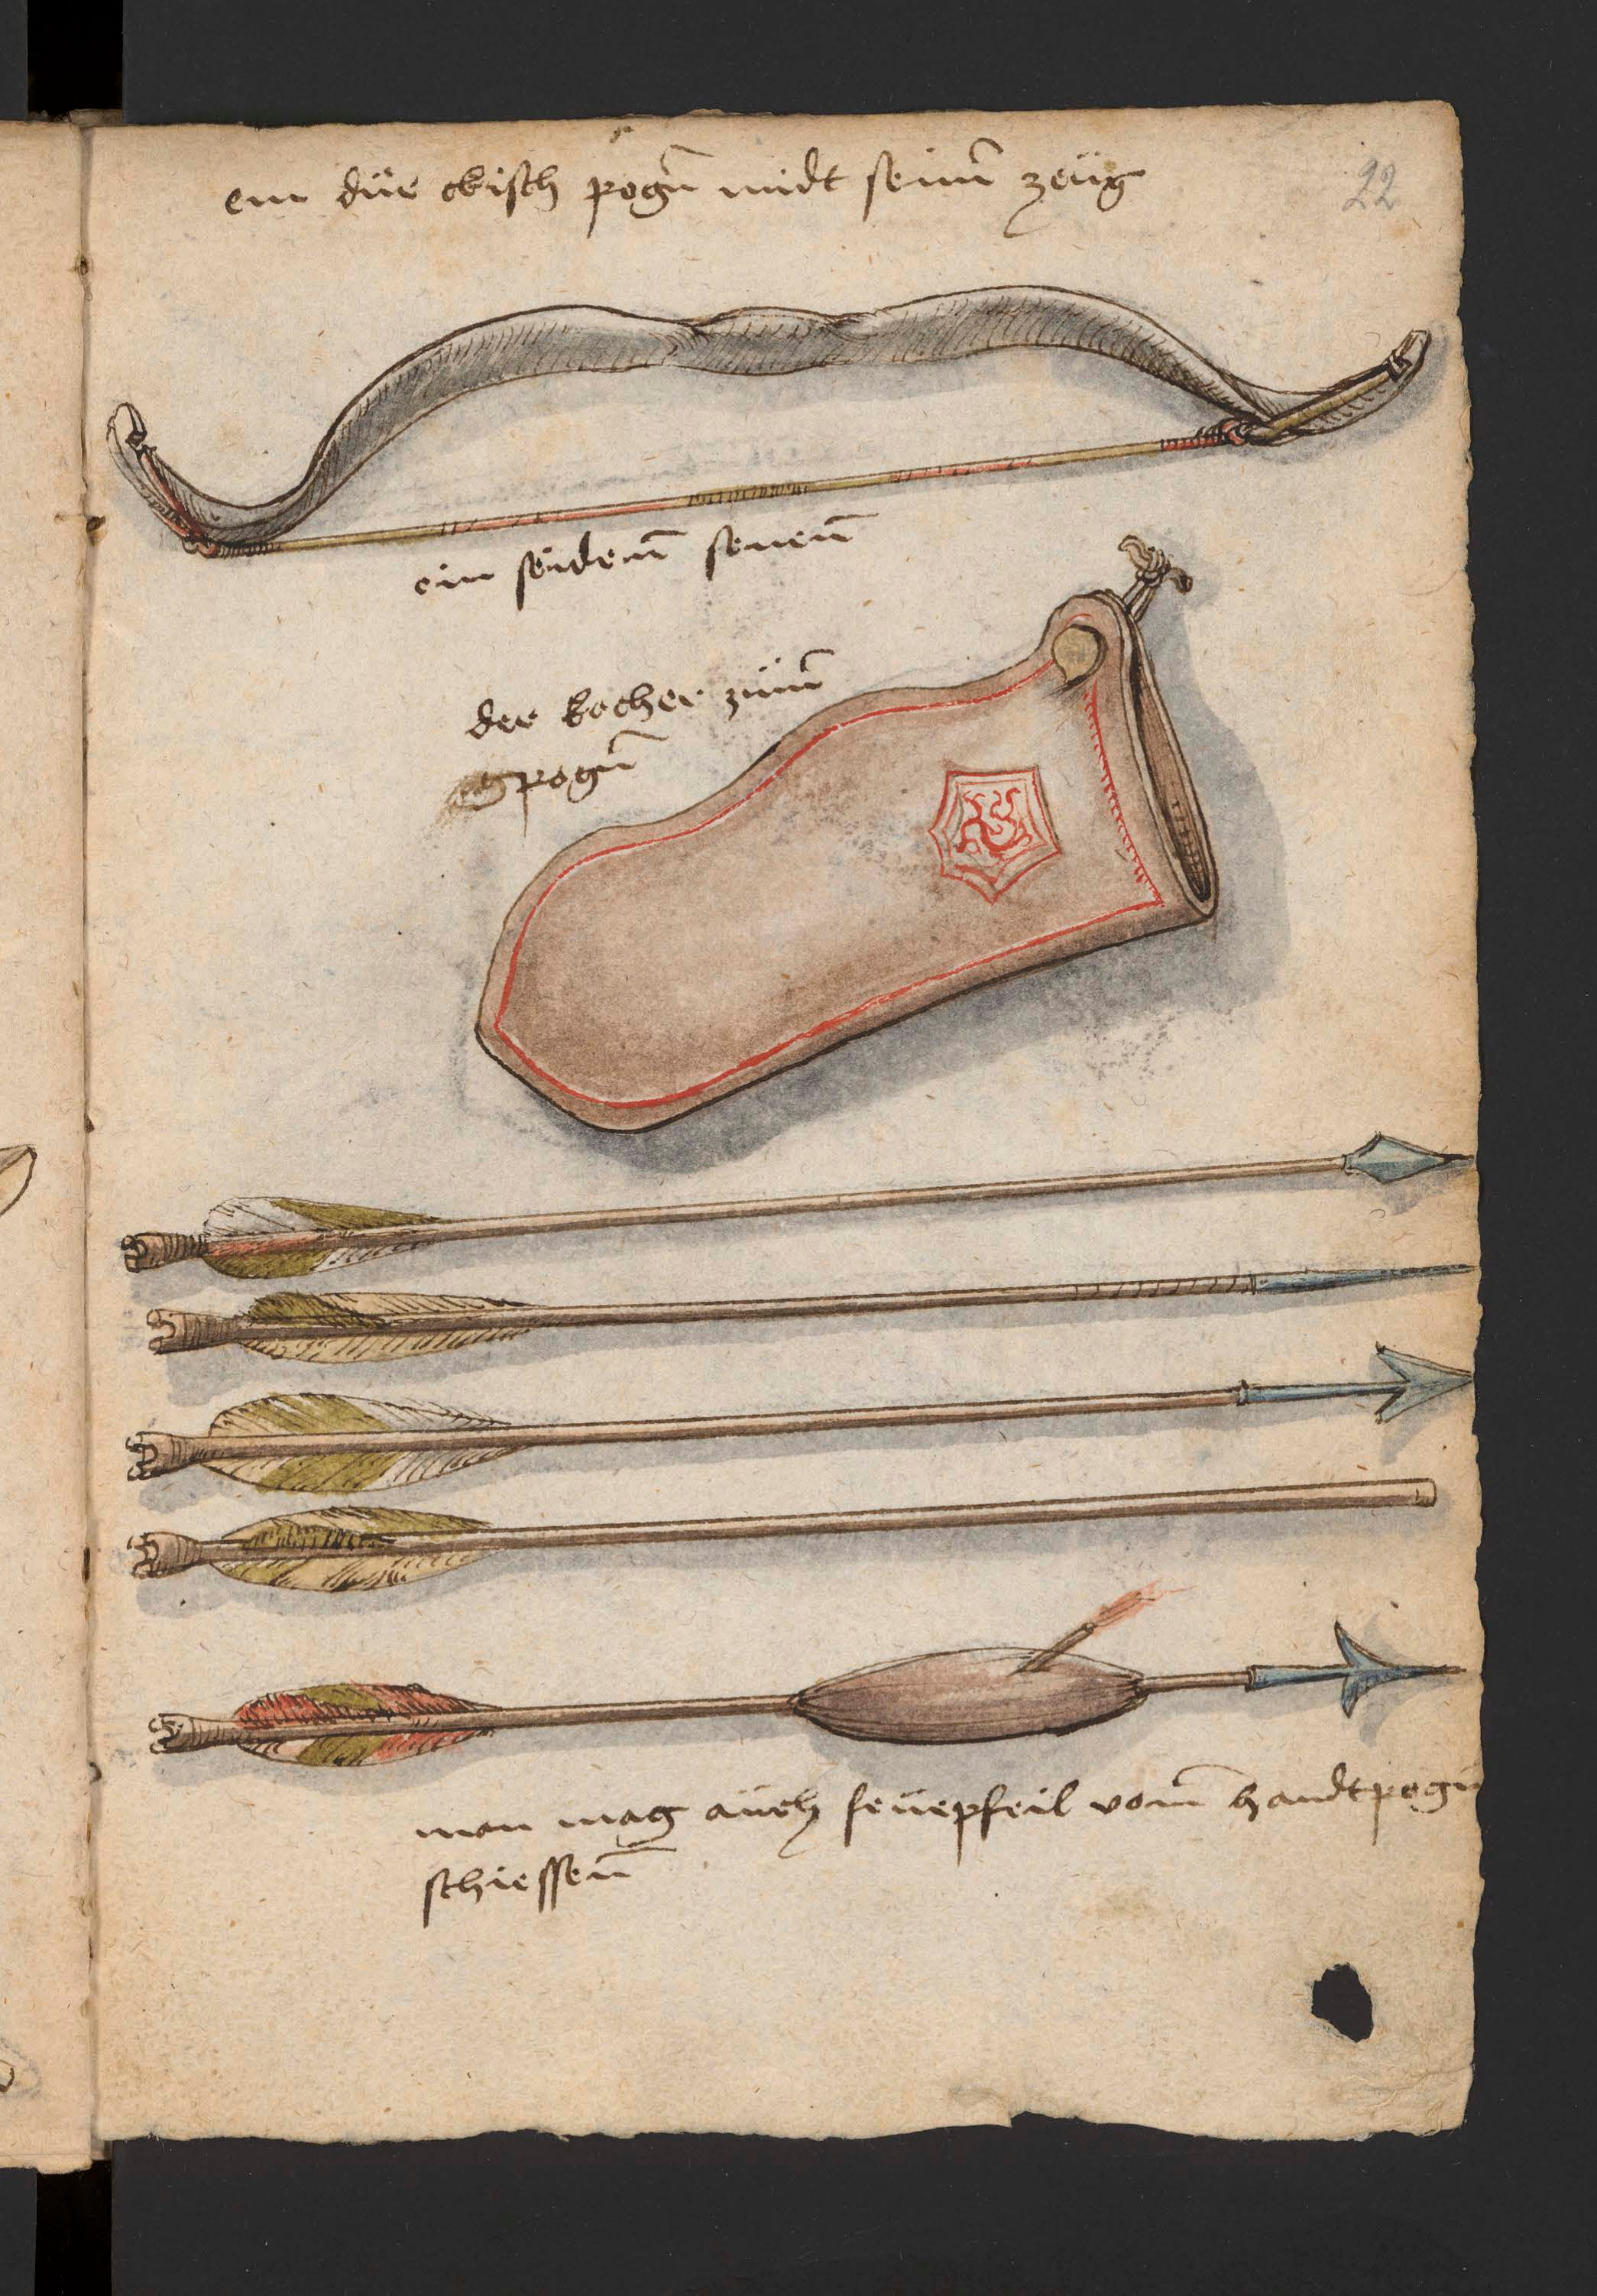 ein dür ckisch pogn̄ midt seinm̄ zeüg
22
ein seidenn̄ senenn̄
der kocher zümm̄
pogn̄
man mag aüch feüepfeil vom̄ handtpogn̄
schiessenn̄